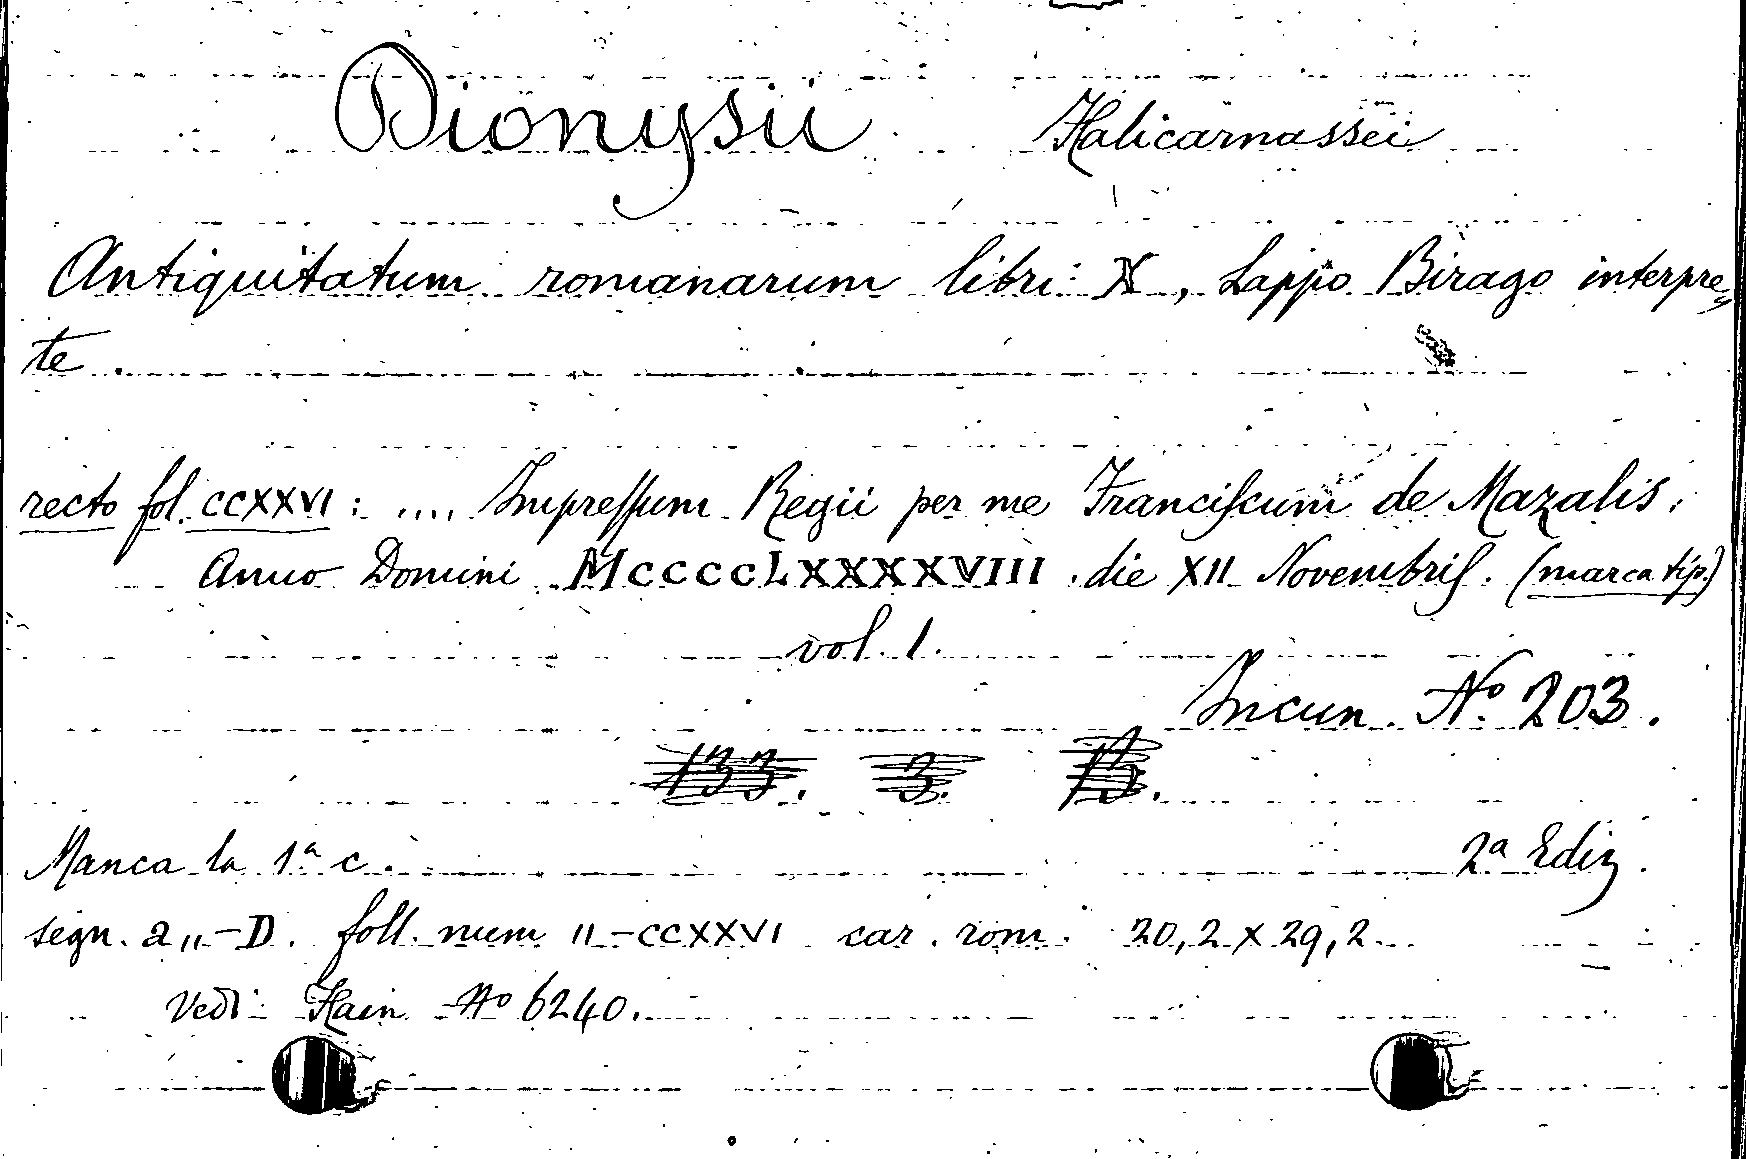 Dionysii Halicarnassei
Antiquitatum romanarum libri X, Lappo Birago interpre-
te.
recto fol. CCXXVI: .... Impreſſum Regii per me Franciſcum de Mazalis.
Anno Domini MCCCCLXXXXVIII. die XII Novembriſ. (marca tip.)
vol. 1.
Incun. No. 203.
133. 3. B.
Manca la 1a c. 2a Ediz.
segn. a11-D. foll. num II-CCXXVI car. rom. 20,2 x 29,2
Vedi Hain No 6240.